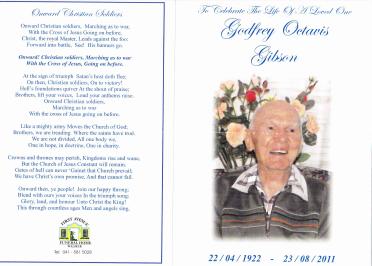 Onward Christian Soldiers
Onward Christian soldiers, Marching as to war,
With the Cross of Jesus Going on before.
Christ, the royal Master, Leads against the foe:
Forward into battle, See! His banners go.
Onward! Christian soldiers, Marching as to war
With the Cross of Jesus, Going on before.
At the sign of triumph Satan's host doth flee;
On then, Christian soldiers, On to victory!
Hell's foundations quiver At the shout of praise;
Brothers, lift your voices, Loud your anthems raise.
Onward Christian soldiers,
Marching as to war
With the cross of Jesus going on before.
Like a mighty army Moves the Church of God;
Brothers, we are treading Where the saints have trod.
We are not divided, All one body we,
One in hope, in doctrine, One in charity.
Crowns and thrones may perish, Kingdoms rise and wane,
But the Church of Jesus Constant will remain.
Gates of hell can never 'Gainst that Church prevail;
We have Christ's own promise, And that cannot fail.
Onward then, ye people! Join our happy throng;
Blend with ours your voices In the triumph song.
Glory, laud, and honour Unto Christ the King!
This through countless ages Men and angels sing.
FIRST AVENUE
FUNERAL HOME
Tel: 041 - 581 5028
To Celebrate The Life Of A Loved One
Godfrey Octavis
Gibson
22 / 04 / 1922 - 23 / 08 / 2011